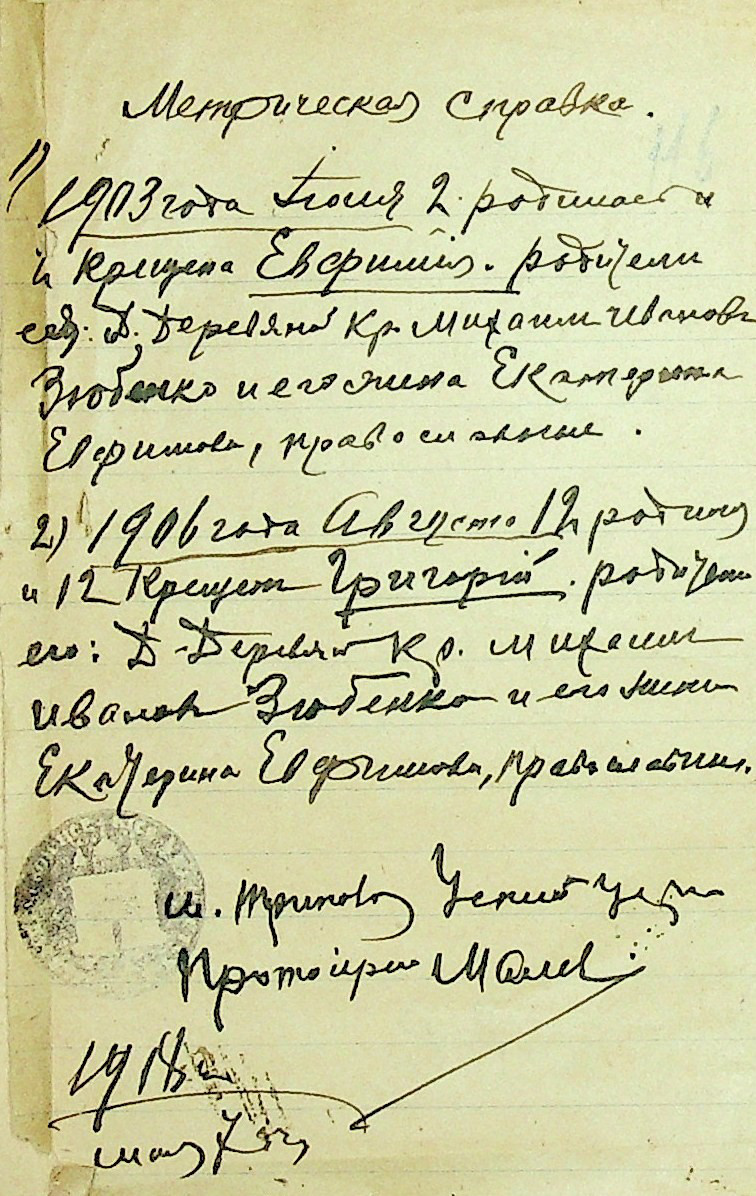 Метрическая справка.
1)
1903 года Іюня 2. родилась и
и крещена Евфимія. родители
ея: Д. Деревяной кр. Михаил Иванов
Зюбенко и его жена Екатерина
Евфимова, православные.
2) 1906 года Августа 12 родился
и 12 крещен Григорій. родители
его: Д. Деревяной кр. Михаил
Иванов Зюбенко и его жена
Екатерина Евфимова, православные.
Протоиерей
1918 г.
мая 7 дня